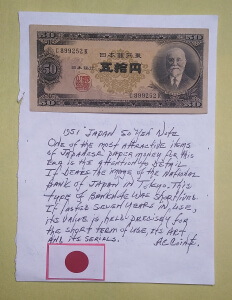 日本銀行券
L899252K
50
五拾円
1951 JAPAN 50 YEN NOTE
ONE OF THE MOST ATTRACTIVE ITEMS
OF JAPANESE PAPER MONEY FOR THIS
ERA IS ITS ATTENTION TO DETAIL
IT BEARS THE NAME OF THE NATIONAL
BANK OF JAPAN IN TOKYO. THIS
TYPE OF BANKNOTE WAS SHORT LIVED.
IT LASTED SEVEN YEARS IN USE,
ITS VALUE IS HELD PRECISELY FOR
THE SHORT TERM OF USE, ITS ART
AND ITS SERIALS.